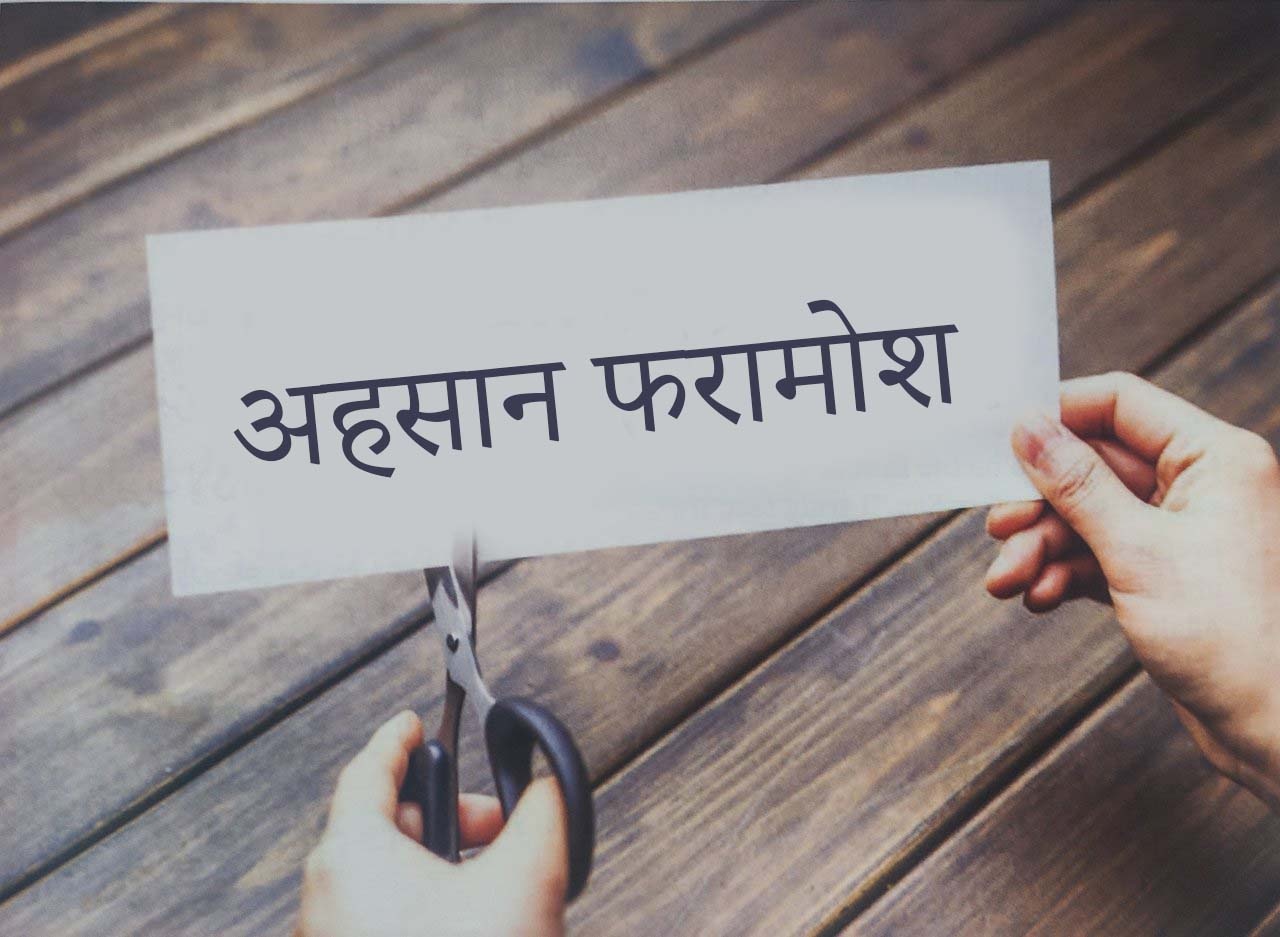 अहसान फरामोश